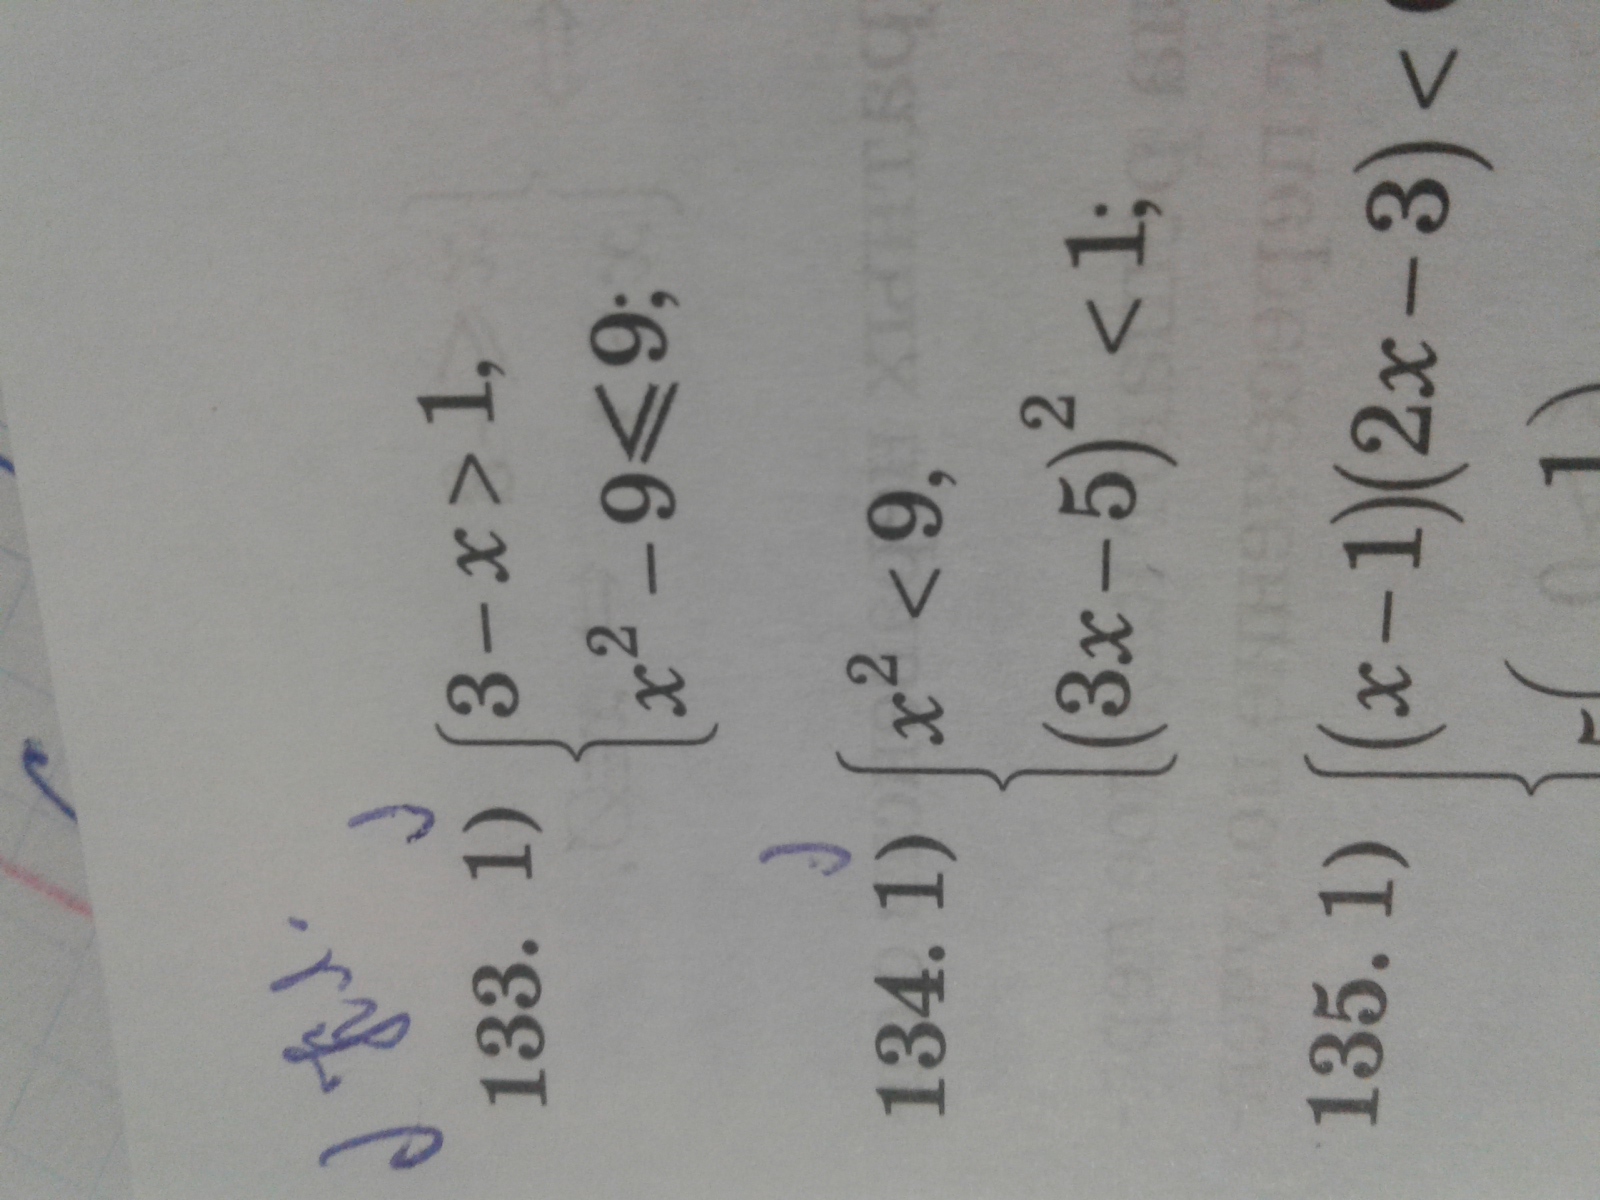 133. 1) { 3 − x > 1,
x² − 9 ⩽ 9;
134. 1) { x² < 9,
(3x − 5)² < 1;
135. 1) { (x − 1)(2x − 3) <